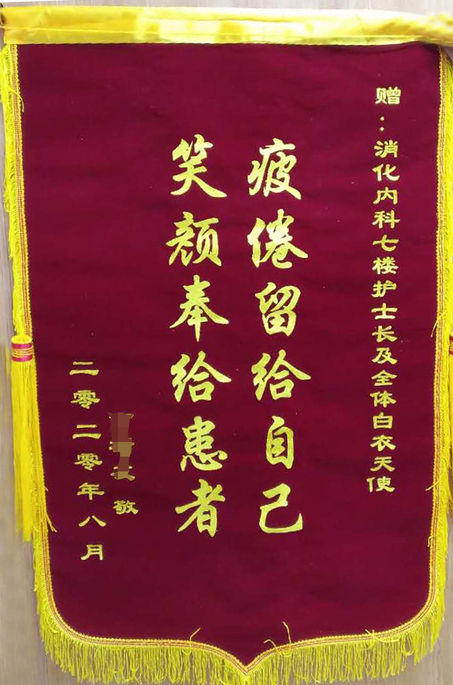 赠：消化内科七楼护士长及全体白衣天使
疲倦留给自己
笑颜奉给患者
敬
二零二零年八月